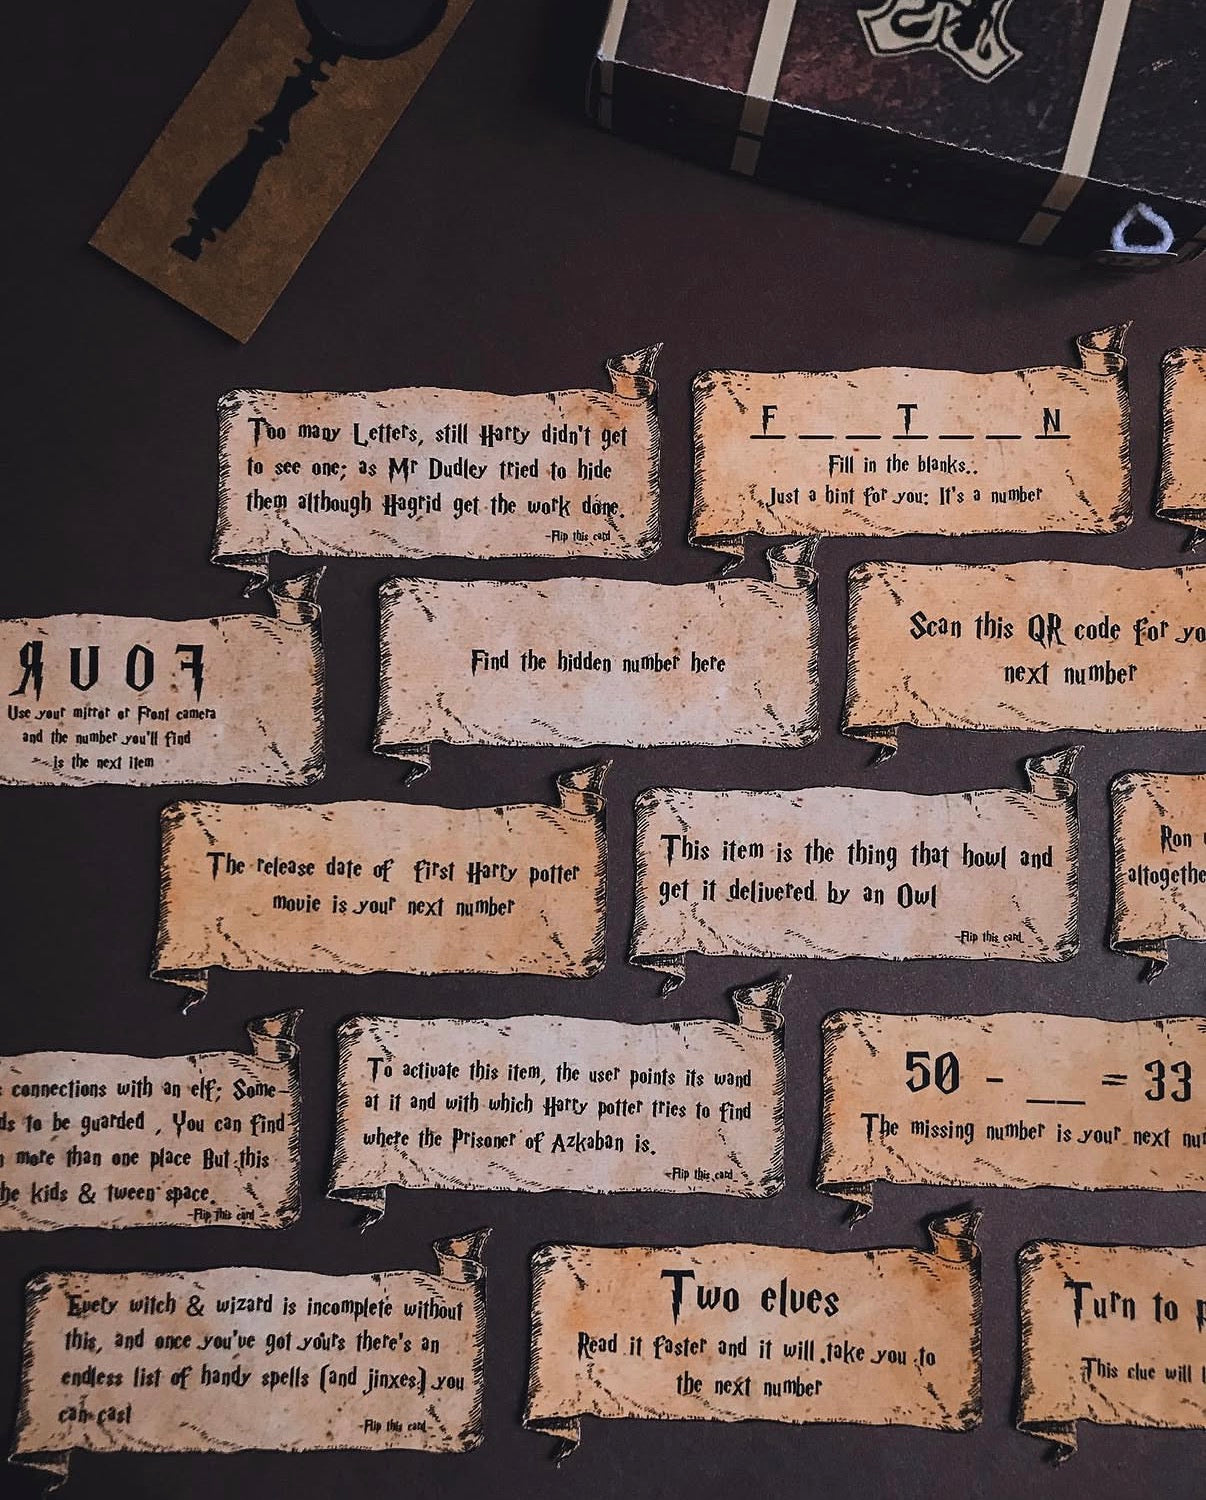 Too many Letters, still Harry didn't get
to see one; as Mr Dudley tried to hide
them although Hagrid get the work done.
-Flip this card
F _ _ T _ _ N
Fill in the blanks..
Just a hint for you: It's a number
FOUR
Use your mirror or Front camera
and the number you'll find
is the next item
Find the hidden number here
Scan this QR code for yo
next number
The release date of first Harry potter
movie is your next number
This item is the thing that howl and
get it delivered by an Owl
-Flip this card
Ron
altogethe
connections with an elf; Some-
ds to be guarded , You can find
more than one place But this
he kids & tween space.
-Flip this card
To activate this item, the user points its wand
at it and with which Harry potter tries to find
where the Prisoner of Azkaban is.
-Flip this card
50 - __ = 33
The missing number is your next nu
Every witch & wizard is incomplete without
this, and once you've got yours there's an
endless list of handy spells (and jinxes) you
can cast
-Flip this card
Two elves
Read it faster and it will take you to
the next number
Turn to p
This clue will